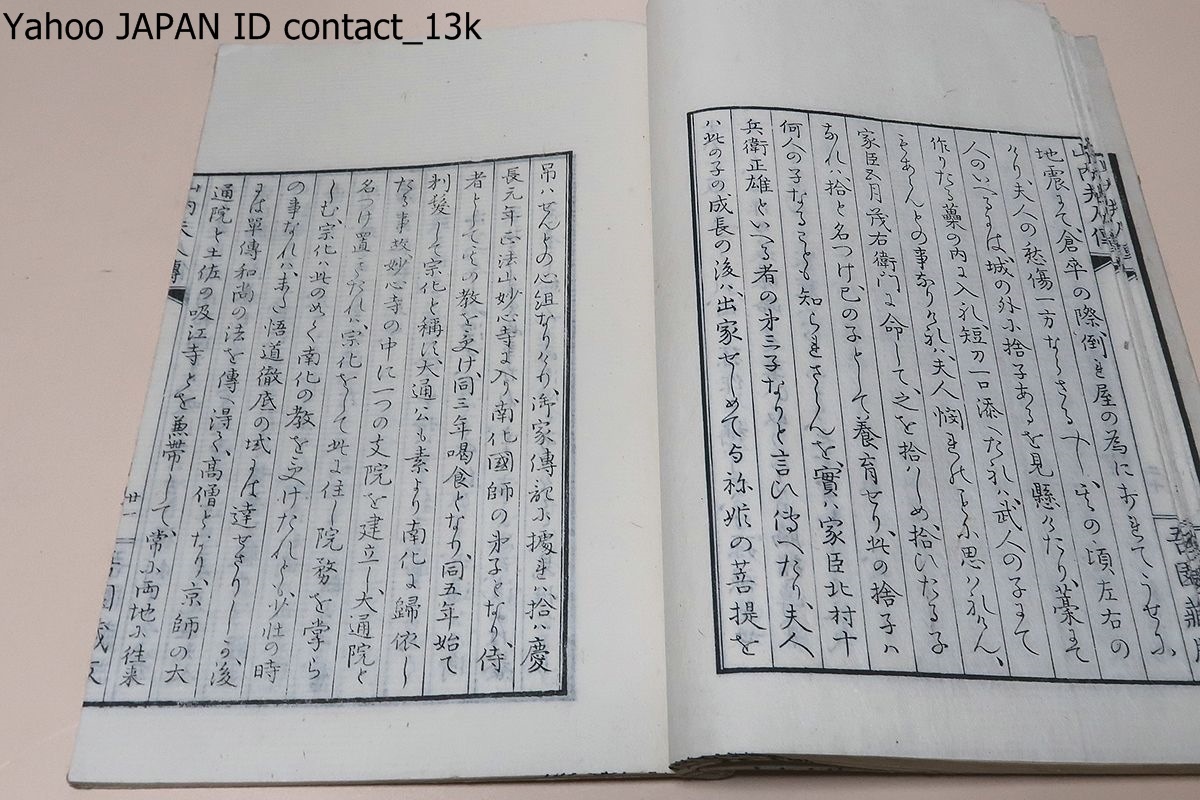 Yahoo JAPAN ID contact_13k
地震にて、倉卒の際倒れ屋の為にうたれてうせぬ
けり、夫人の愁傷一方ならさる 其の頃左右の
人のいへるには城の外に捨子あるを見懸けたり、藁にて
作りたる の内に入れ短刀一口添へたれハ武人の子にて
もあらんとの事なりけれハ夫人憫れのことに思ハれけん、
家臣五月茂右衛門に命して之を拾ハしめ拾いたる子
なれハ拾と名つけ己の子として養育せり、此の捨子ハ
何人の子なることも知られさらんを實ハ家臣北村十
兵衛正雄といへる者の第三子なりと言ひ傳へたり、夫人
ハ此の子の成長の後ハ出家せしめて与祢姫の菩提を
吊ハせんとの心組なりけり、御家傳記に據れハ拾ハ慶
長元年正法山妙心寺に入り南化國師の弟子となり、侍
者として其の教を受け、同三年喝食となり、同五年始て
剃髪して宗化と稱す、大通公も素より南化に歸依し
たる事故妙心寺の中に一つの支院を建立し大通院と
名つけ置きたれハ、宗化をして此に住し院務を掌ら
しむ、宗化ハ此のことく南化の教を受けたれとも少壮の時
の事なれハまた悟道徹底の域には達せさりしか後
には單傳和尚の法を傳へ得て、高僧となり、京師の大
通院と土佐の吸江寺とを兼帯して、常に両地に往来
山内夫人傳
廿一